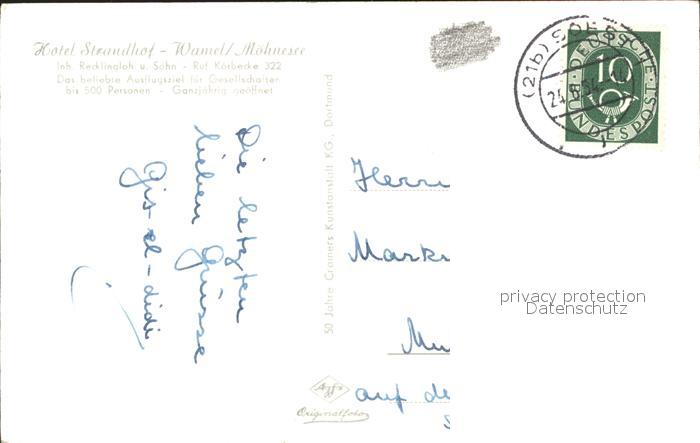 Hotel Strandhof – Wamel/Möhnesee
Inh. Recklingloh u. Sohn - Ruf Körbecke 322
Das beliebte Ausflugsziel für Gesellschaften
bis 500 Personen - Ganzjährig geöffnet
Die letzten
lieben Grüsse
50 Jahre Crainers Kunstanstalt KG., Dortmund
Agfa
Originalfoto
(21b) SOEST
24.6.54
DEUTSCHE
10
BUNDESPOST
Herrn
Mark
Mu
auf de
privacy protection
Datenschutz